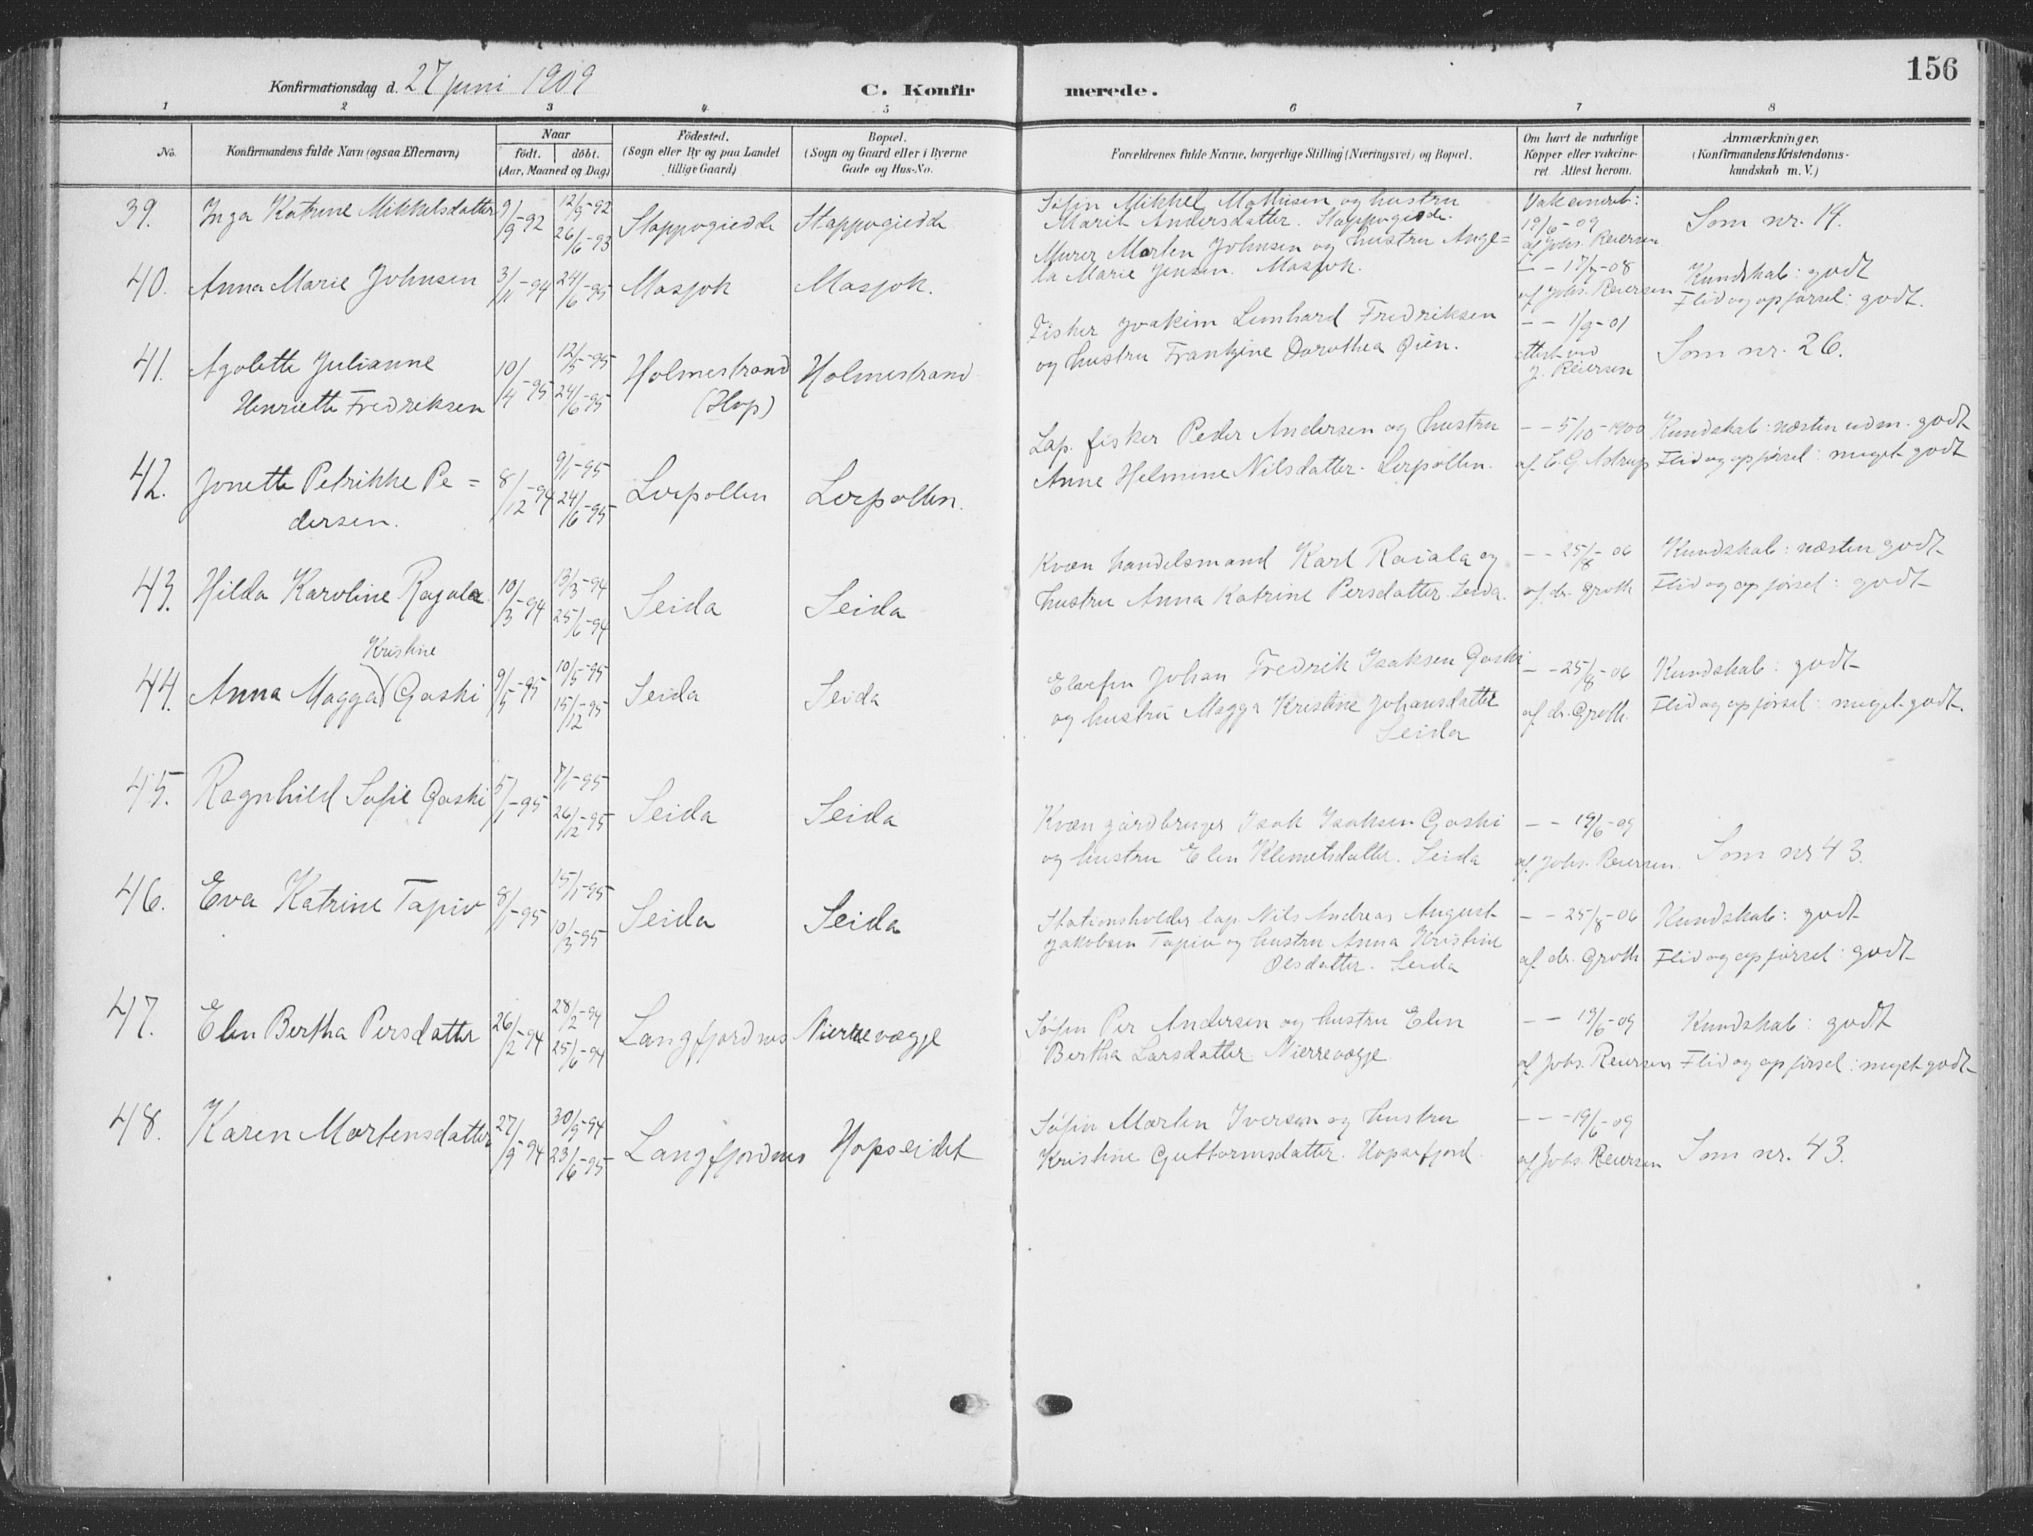 156
Konfirmationsdag d. 27 juni 1909
C. Konfirmerede.
1 2 3 4. 5 6 7 8
No.
Konfirmandens fulde Navn (ogsaa Efternavn)
Naar
født. døbt.
(Aar, Maaned og Dag)
Fødested.
(Sogn eller By og paa Landet
tillige Gaard)
Bopæl.
(Sogn og Gaard eller i Byerne
Gade og Hus-No.
Forældrenes fulde Navne, borgerlige Stilling (Næringsvei) og Bopæl.
Om havt de naturlige
Kopper eller vakcine-
ret. Attest herom.
Anmærkninger,
(Konfirmandens Kristendoms-
kundskab m. V.)
39. Inga Katrine Mikkelsdatter 9/9-92 12/9-92 26/6-93 Stappogiedde Stappogiedde
Søfin Mikkel Mathisen og hustru
Marit Andersdatter. Stappogiedde.
Vakcineret:
19/6-09
af Johs. Reiersen
Som nr. 19.
40. Anna Marie Johnsen 3/11-94 24/6-95 Masjok Masjok.
Murer Morten Johnsen og hustru Ange=
la Marie Jensen. Masjok.
- - 17/7-08
af Johs. Reiersen
Kundskab: godt
Flid og opførsel: godt.
41. Agolette Julianne
Henriette Fredriksen
10/4-95 12/5-95 24/6-95
Holmestrand
(Hop)
Holmestrand
Fisker Joakim Lenhard Fredriksen
og hustru Frantzine Dorothea Øien.
- - 1/9-01
attest ved
J. Reiersen
Som nr. 26.
42. Jonette Petrikke Pe=
dersen.
8/12-94 9/1-95 24/6-95
Lerpollen Lerpollen.
Lap. fisker Peder Andersen og hustru
Anne Helmine Nilsdatter. Lerpollen.
- - 5/10-1900
af C. G. Astrup
Kundskab: næsten udm. godt
Flid og opførsel: meget godt
43. Hilda Karoline Rajala 10/3-94 13/3-94 25/6-94 Seida Seida
Kvæn handelsmand Karl Raiala og
hustru Anna Katrine Persdatter. Seida.
- - 25/8-06
af dr. Groth
Kundskab: næsten godt
Flid og opførsel: godt
Kristine
44. Anna Magga Gaski 9/5-95 10/5-95 15/12-95 Seida Seida
Elvefin Johan Fredrik Isaksen Gaski
og hustru Magga Kristine Johansdatter
Seida
- - 25/8-06
af dr. Groth.
Kundskab: godt
Flid og opførsel: meget godt.
45. Ragnhild Sofie Gaski 5/1-95 7/1-95 26/12-95 Seida Seida
Kvæn gårdbruger Isak Isaksen Gaski
og hustru Elen Klemetsdatter. Seida
- - 19/6-09
af Johs. Reiersen.
Som nr 43.
46. Eva Katrine Tapio 8/1-95 15/1-95 10/3-95 Seida Seida
Stationsholder lap. Nils Andreas August
Jakobsen Tapio og hustru Anna Kristine
Olsdatter. Seida
- - 25/8-06
af. dr. Groth
Kundskab: godt
Flid og opførsel: godt
47. Elen Bertha Persdatter 26/2-94 28/2-94 25/6-94 Langfjordnes Nierrevagge
Søfin Per Andersen og hustru Elen
Bertha Larsdatter Nierrevagge
- - 19/6-09
af Johs. Reiersen
Kundskab: godt
Flid og opførsel: meget godt
48. Karen Mortensdatter 27/9-94 30/9-94 23/6-95 Langfjordnes Hopseidet
Søfin Morten Iversen og hustru
Kristine Guttormsdatter. Hopsefjord
- - - 19/6-09
af Johs. Reiersen
Som nr. 43.